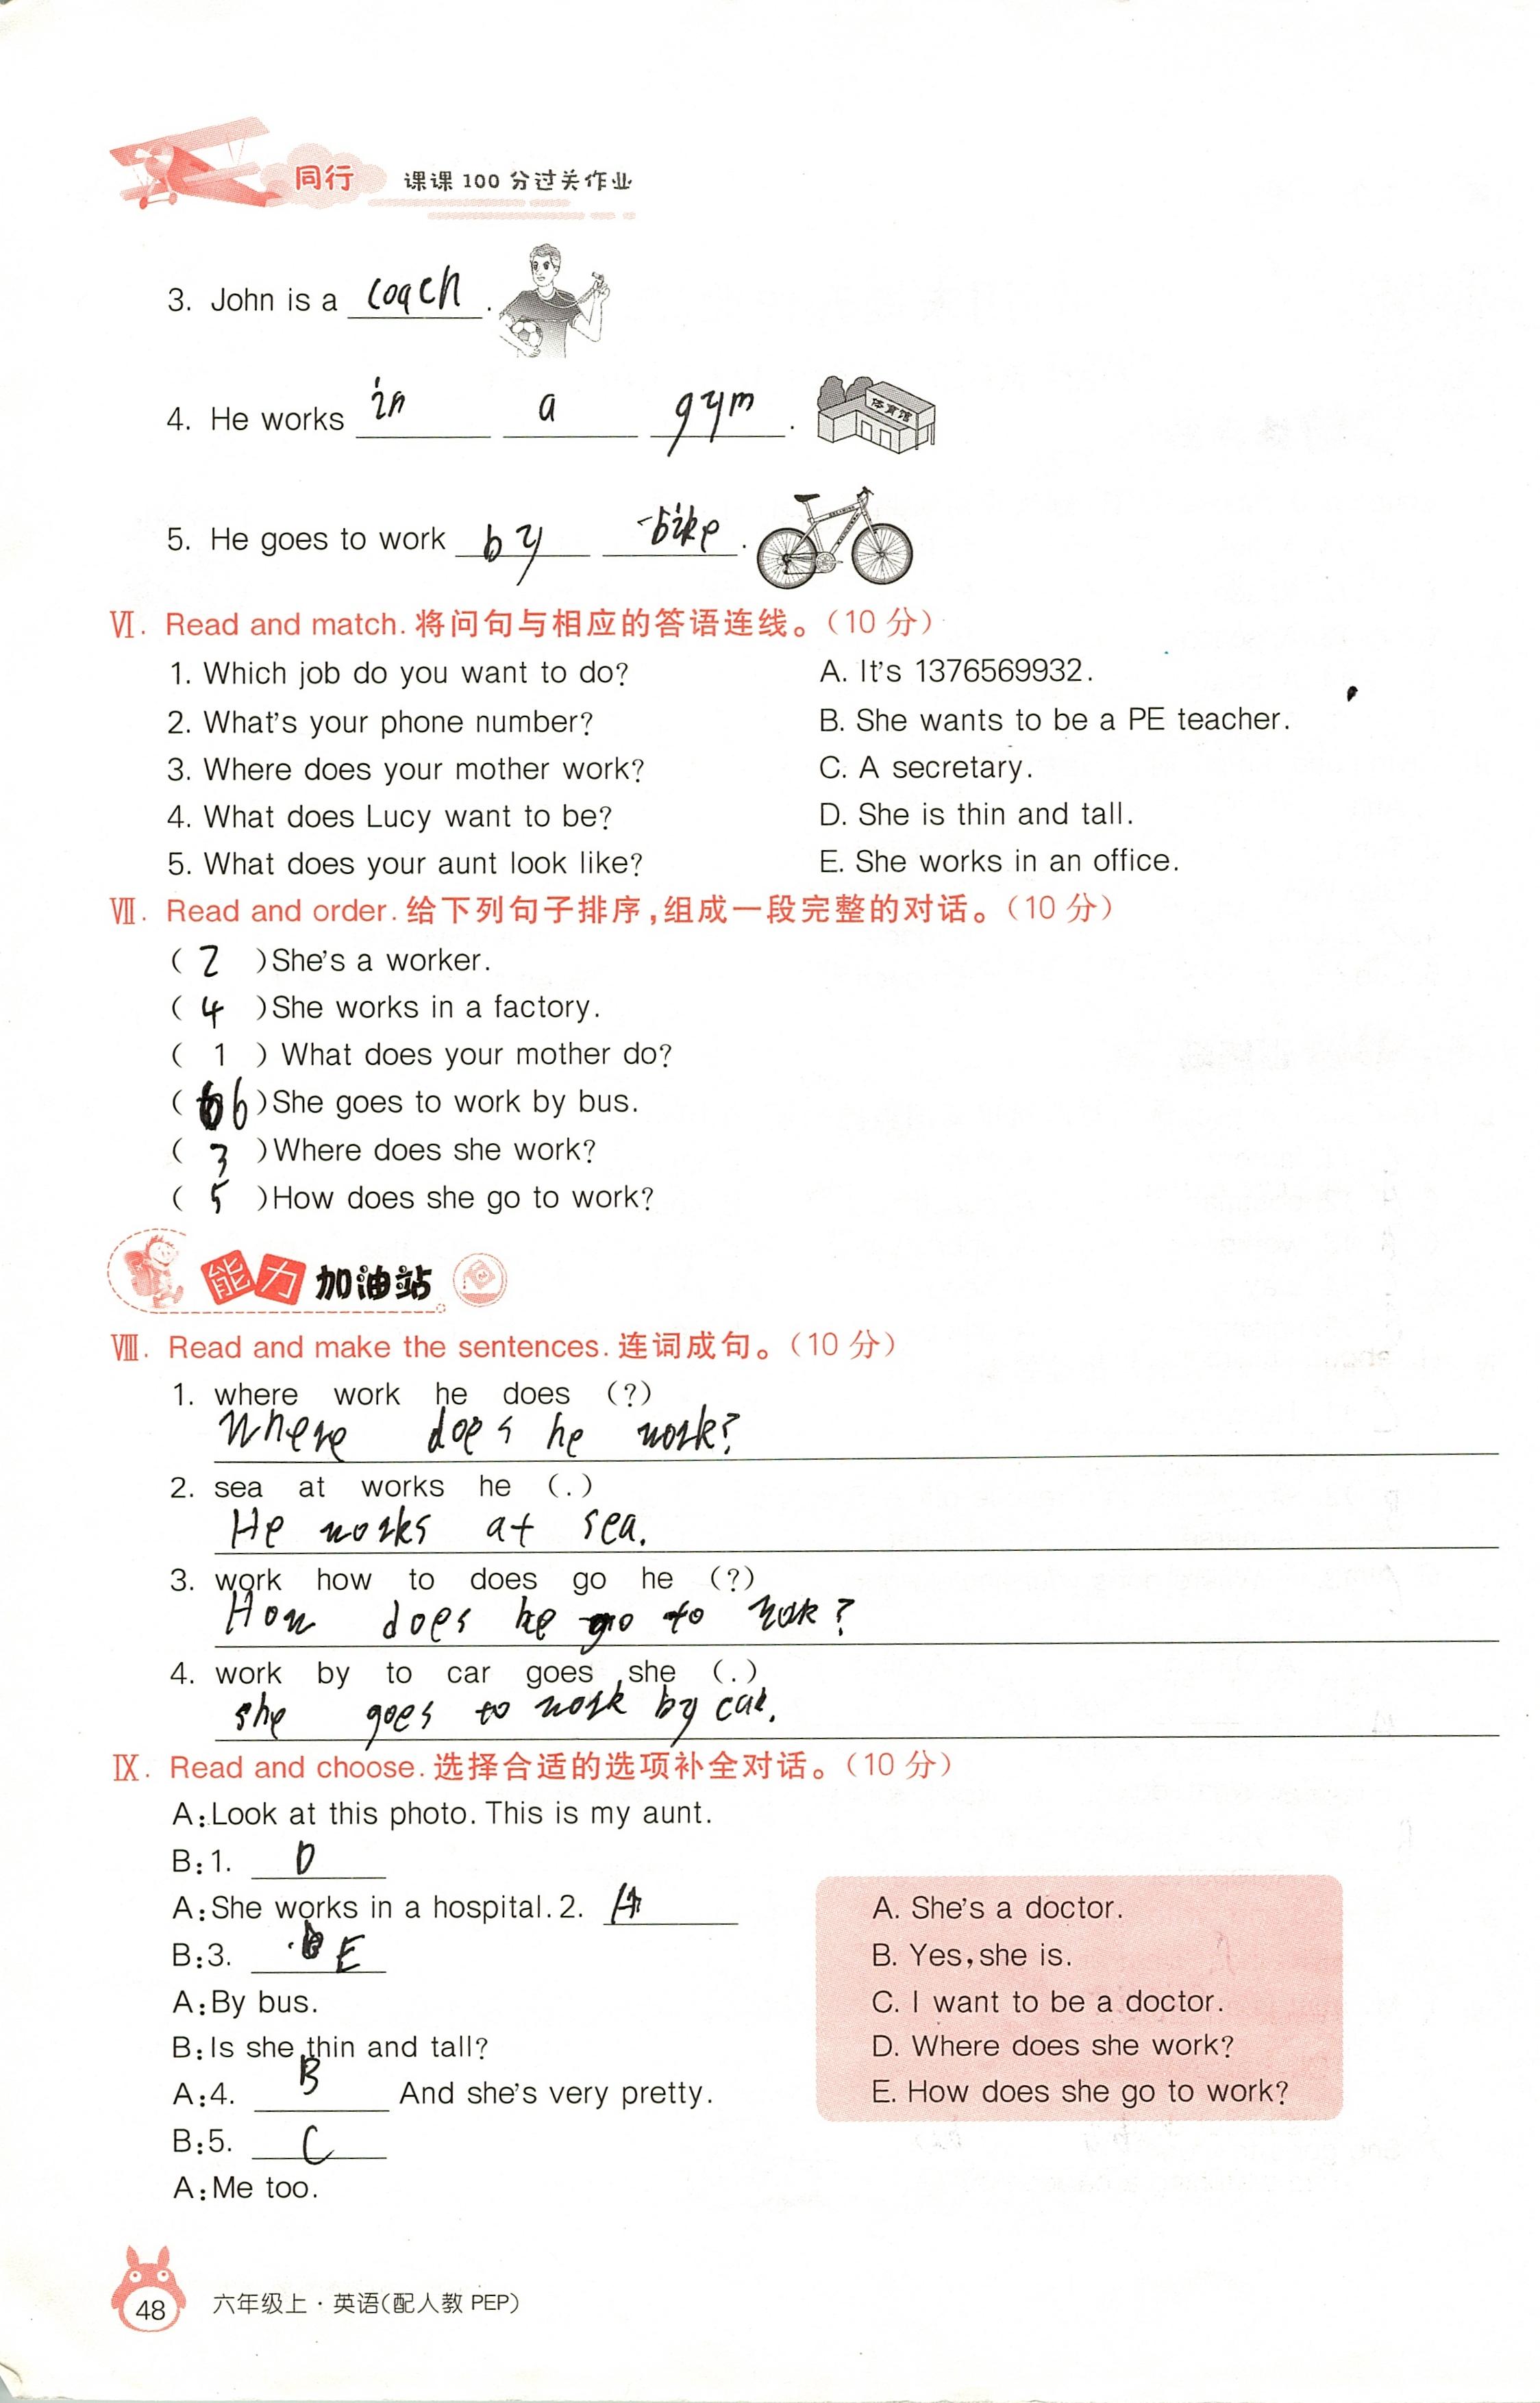 同行 课课100分过关作业
3. John is a coach.
4. He works in a gym. 体育馆
5. He goes to work by bike.
Ⅵ. Read and match. 将问句与相应的答语连线。(10分)
1. Which job do you want to do? A. It's 1376569932.
2. What's your phone number? B. She wants to be a PE teacher.
3. Where does your mother work? C. A secretary.
4. What does Lucy want to be? D. She is thin and tall.
5. What does your aunt look like? E. She works in an office.
Ⅶ. Read and order. 给下列句子排序,组成一段完整的对话。(10分)
( 2 )She's a worker.
( 4 )She works in a factory.
( 1 ) What does your mother do?
( 6 )She goes to work by bus.
( 3 )Where does she work?
( 5 )How does she go to work?
能力加油站
Ⅷ. Read and make the sentences. 连词成句。(10分)
1. where work he does (?)
Where does he work?
2. sea at works he (.)
He works at sea.
3. work how to does go he (?)
How does he go to work?
4. work by to car goes she (.)
she goes to work by car.
Ⅸ. Read and choose. 选择合适的选项补全对话。(10分)
A:Look at this photo. This is my aunt.
B:1. D
A:She works in a hospital. 2. A
B:3. E
A:By bus.
B:Is she thin and tall?
A:4. B And she's very pretty.
B:5. C
A:Me too.
A. She's a doctor.
B. Yes,she is.
C. I want to be a doctor.
D. Where does she work?
E. How does she go to work?
48 六年级上·英语(配人教PEP)